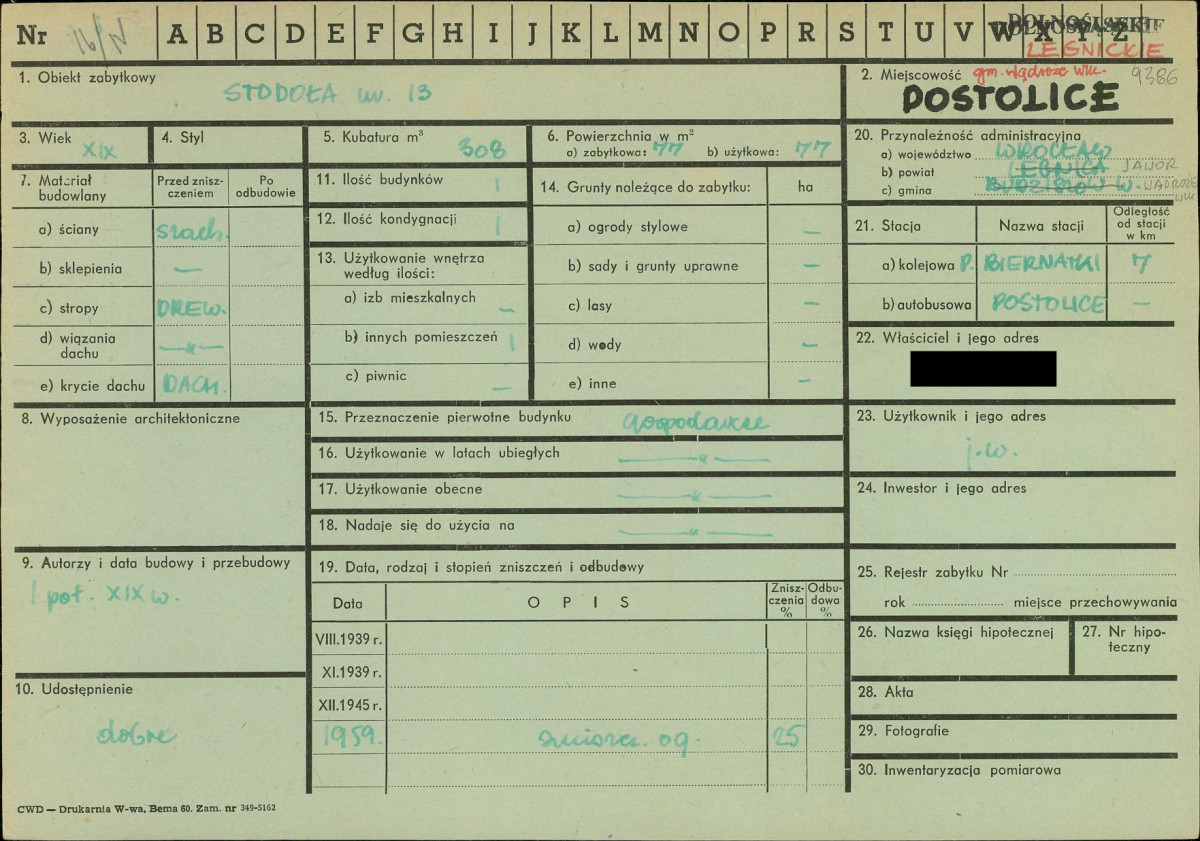 Nr 16/N A B C D E F G H I J K L M N O P R S T U V W X Y Z
DOLNOŚLĄSKIE
LEGNICKIE
1. Obiekt zabytkowy
STODOŁA nr. 13
2. Miejscowość gm. Wądroże Wlk. 9386
POSTOLICE
3. Wiek XIX
4. Styl
5. Kubatura m³ 308
6. Powierzchnia w m²
a) zabytkowa: 77 b) użytkowa: 77
20. Przynależność administracyjna
a) województwo WROCŁAW
b) powiat LEGNICA JAWOR
c) gmina BUDZISZÓW W. WĄDROŻE WLK
7. Materiał budowlany
Przed zniszczeniem
Po odbudowie
a) ściany szach.
b) sklepienia —
c) stropy DREW.
d) wiązania dachu —"—
e) krycie dachu DACH.
11. Ilość budynków 1
12. Ilość kondygnacji 1
13. Użytkowanie wnętrza według ilości:
a) izb mieszkalnych —
b) innych pomieszczeń 1
c) piwnic —
14. Grunty należące do zabytku: ha
a) ogrody stylowe —
b) sady i grunty uprawne —
c) lasy —
d) wody —
e) inne —
21. Stacja Nazwa stacji Odległość od stacji w km
a) kolejowa P. BIERNATKI 7
b) autobusowa POSTOLICE —
22. Właściciel i jego adres
8. Wyposażenie architektoniczne
15. Przeznaczenie pierwotne budynku gospodarcze
16. Użytkowanie w latach ubiegłych —"—
17. Użytkowanie obecne —"—
18. Nadaje się do użycia na —"—
23. Użytkownik i jego adres
j.w.
24. Inwestor i jego adres
9. Autorzy i data budowy i przebudowy
1 poł. XIX w.
19. Data, rodzaj i stopień zniszczeń i odbudowy
Data OPIS Zniszczenia % Odbudowa %
VIII.1939 r.
XI.1939 r.
XII.1945 r.
1959. zniszcz. og. 25
25. Rejestr zabytku Nr
rok miejsce przechowywania
26. Nazwa księgi hipotecznej
27. Nr hipoteczny
10. Udostępnienie
dobre
28. Akta
29. Fotografie
30. Inwentaryzacja pomiarowa
CWD — Drukarnia W-wa, Bema 60. Zam. nr 349-5162